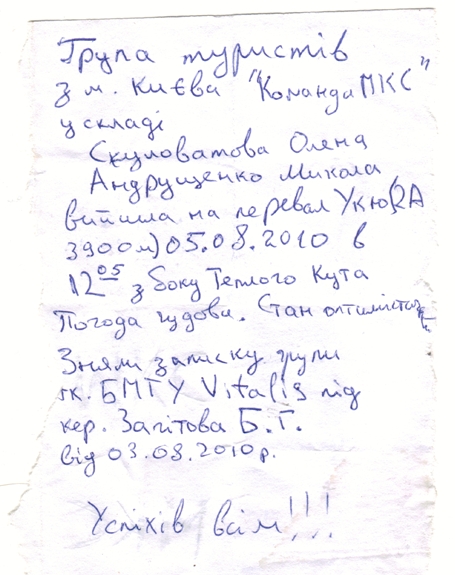 Група туристів
з м. Києва "Команда МКС"
у складі
Скуловатова Олена
Андрущенко Микола
вийшла на перевал Укю (2А
3900м) 05.08.2010 в
12 05 з боку Теплого Кута
Погода чудова. Стан
Зняли записку групи
тк. БМТУ Vitalis під
кер. Загітова Б.Г.
від 03.08.2010 р.
Успіхів всім!!!